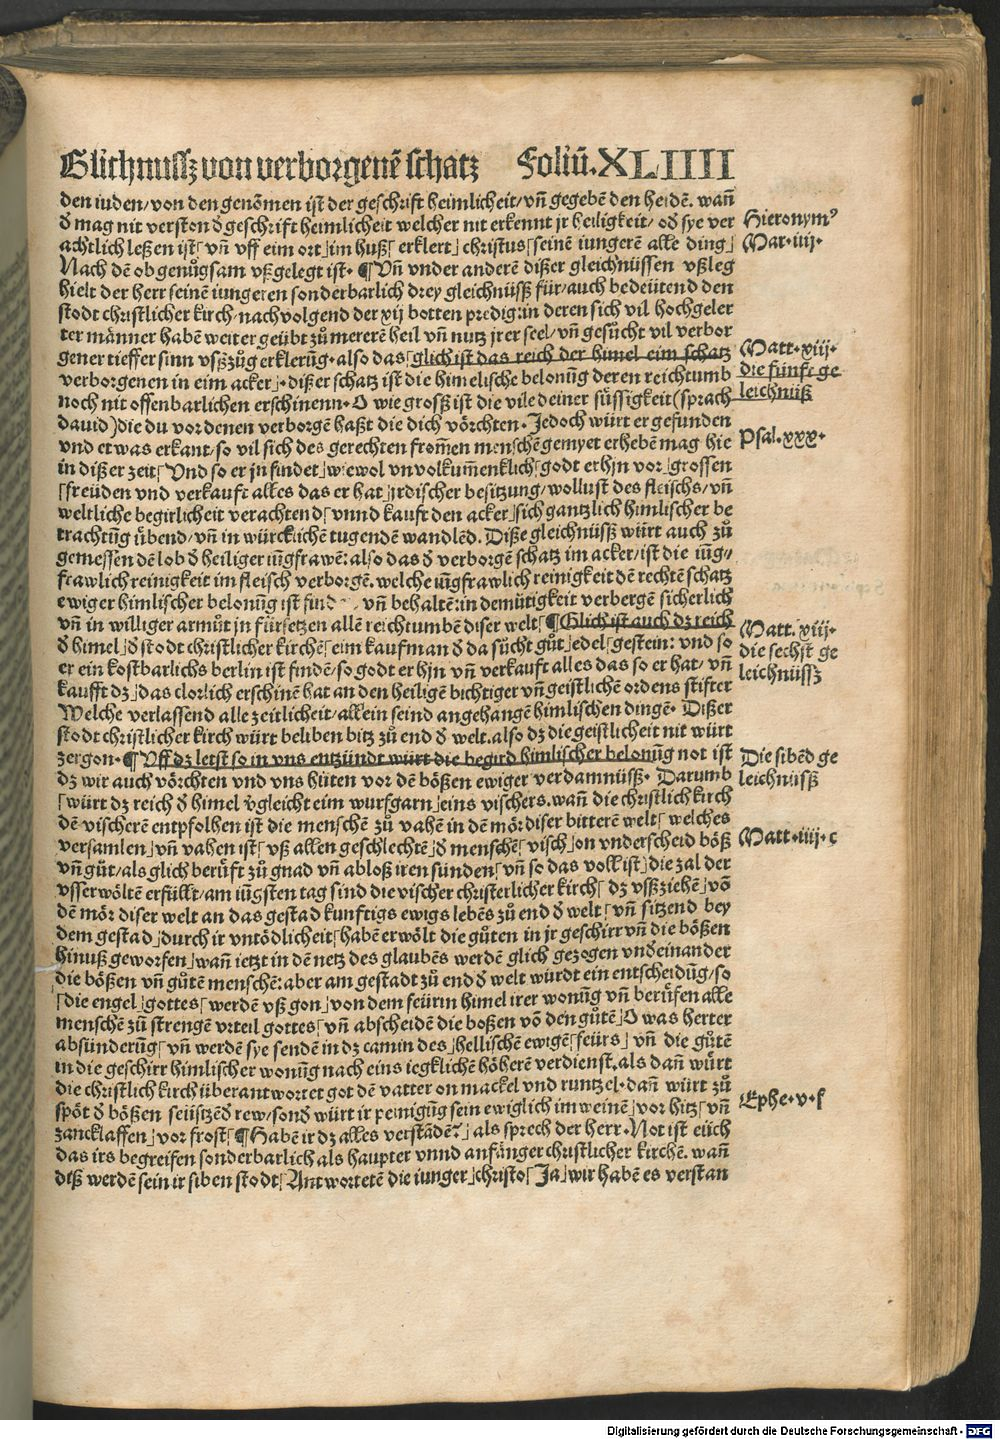 Glichnussz von verborgenē schatz Foliū. XLIIII
den iuden/ von den genōmen ist der geschrift heimlicheit/ vn̄ gegebē den heidē. wan̄
d mag nit verston d geschrift heimlicheit welcher nit erkennt jr heiligkeit/ od sye ver
Hieronymꝰ
achtlich leßen ist⌈ vn̄ vff eim ort⌋ im huß⌈ erklert⌋ christus⌈ seinē iungerē alle ding⌋
Mar. iiij.
Nach dē ob genůgsam vßgelegt ist. ¶ Vn̄ vnder anderē dißer gleichnüssen vßleg
hielt der herr seinē iungeren sonderbarlich drey gleichnüssß für/ auch bedeütend den
stodt christlicher kirch/ nachvolgend der xij botten predig: in deren sich vil hochgeler
ter männer habē weiter geübt zů mererē heil vn̄ nutz jrer seel/ vn̄ gesůcht vil verbor
gener tieffer sinn vßzůg erklerūg. also das⌈ glich ist das reich der himel eim schatz
Matt. xiij.
verborgenen in eim acker⌋. dißer schatz ist die himelische belonūg deren reichtumb
die fünft ge
noch nit offenbarlichen erschinenn. O wie grosß ist die vile deiner süssigkeit (sprach
leichnüß
dauid) die du vor denen verborgē haßt die dich vörchten. Jedoch würt er gefunden
Psal. xxx.
vnd etwas erkant/ so vil sich des gerechten from̄en menschē gemyet erhebē mag hie
in dißer zeit⌈ Vnd so er jn findet⌋ wiewol vnvolkum̄enklich⌈ godt er hjn vor⌋ grossen
⌈freüden vnd verkauft alles das er hat⌋ jrdischer besitzung/ wollust des fleischs/ vn̄
weltliche begirlicheit verachtend⌈ vnnd kauft den acker⌋ sich gantzlich himlischer be
trachtūg übend/ vn̄ in würcklichē tugendē wandlēd. Diße gleichnüsß würt auch zů
gemessen dē lob d heiliger iūgfrawē: also das d verborgē schatz im acker/ ist die iūg⸗
frawlich reinigkeit im fleisch verborgē. welche iūgfrawlich reinigkeit dē rechtē schatz
ewiger himlischer belonūg ist vn̄ behaltē: in demütigkeit verbergē sicherlich
vn̄ in williger armůt jn fürsetzen allē reichtumbē diser welt⌈ ¶ Glich ist auch dz reich
Matt. xiij.
d himel⌋ d stodt christlicher kirchē⌈ eim kaufman d da sücht gůt⌋ edel⌈ gestein: vnd so
die sechst ge
er ein kostbarlichs berlin ist findē/ so godt er hjn vn̄ verkauft alles das so er hat/ vn̄
leichnüssz
kaufft dz⌋ das clorlich erschinē hat an den heiligē bichtiger vn̄ geistlichē ordens stifter
Welche verlassend alle zeitlicheit/ allein seind angehangē himlischen dingē. Dißer
stodt christlicher kirch würt beliben bitz zů end d welt. also dz die geistlicheit nit würt
zergon. ¶ Vff dz letst so in vns entzündt würt die begird himlischer belonūg not ist
Die sibēd ge
dz wir auch vörchten vnd vns hüten vor den bößen ewiger verdamnüß. Darumb
leichnüsß
⌈würt dz reich d himel vgleicht eim wurfgarn⌋ eins vischers. wan̄ die christlich kirch
dē vischerē entpfolhen ist die menschē zů vahen in dē mör diser bitterē welt⌈ welches
versamlen⌋ vn̄ vahen ist⌈ vß allen geschlechtē⌋ d menschē⌈ visch⌋ on vnderscheid böß
Matt. iiij. c
vn̄ gůt/ als glich berüft zů gnad vn̄ abloß iren sünden⌈ vn̄ so das voll ist⌋ die zal der
vsserwöltē erfüllt/ am iūgsten tag sind die vischer christerlicher kirch⌈ dz vßziehē⌋ vō
dē mör diser welt an das gestad kunftigs ewigs lebēs zů end d welt⌈ vn̄ sitzend bey
dem gestad⌋ durch ir vntödlicheit⌈ habē erwölt die gůten in jr geschirr vn̄ die bößen
hinuß geworfen⌋ wan̄ ietzt in dē netz des glaubēs werdē glich gezogen vnd einander
die bößen vn̄ gůtē menschē: aber am gestadt zů end d welt würdt ein entscheidūg/ so
⌈die engel⌋ gottes⌈ werdē vß gon⌋ von dem feürin himel irer wonūg vn̄ berüfen alle
menschē zů strengē vrteil gottes⌈ vn̄ abscheidē die boßen vō den gůtē⌋ O was herter
absünderūg⌈ vn̄ werdē sye sendē in dz camin des⌋ hellischē ewigē⌈ feürs⌋ vn̄ die gůtē
in die geschirr himlischer wonūg nach eins iegklichē höherē verdienst. als dan̄ würt
die christlich kirch überantwortet got dē vatter on mackel vnd runtzel. dan̄ würt zů
Ephe. v. f
spöt d bößen seüstzēd rew/ sond würt ir peinigūg sein ewiglich im weinē⌋ vor hitz⌈ vn̄
zancklaffen⌋ vor frost⌈ ¶ Habē ir dz alles verstādē?⌋ als sprech der herr. Not ist eüch
das irs begreifen sonderbarlich als haupter vnnd anfänger christlicher kirchē. wan̄
diß werdē sein ir siben stodt⌈ Antwortetē die iunger⌋ christo⌈ Ja⌋ wir habē es verstan
Digitalisierung gefördert durch die Deutsche Forschungsgemeinschaft - DFG